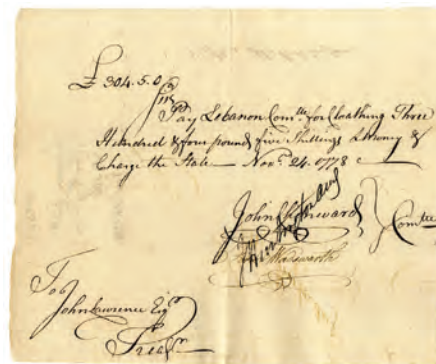 £ 304.5.0
Sir
Pay Lebanon Comtte for Cloathing Three
Hundred & four pounds five Shillings L Money &
Charge the State Novr 24. 1778
John Chenward
Comtee
Wadsworth
To
John Lawrence Esqr
Treasr